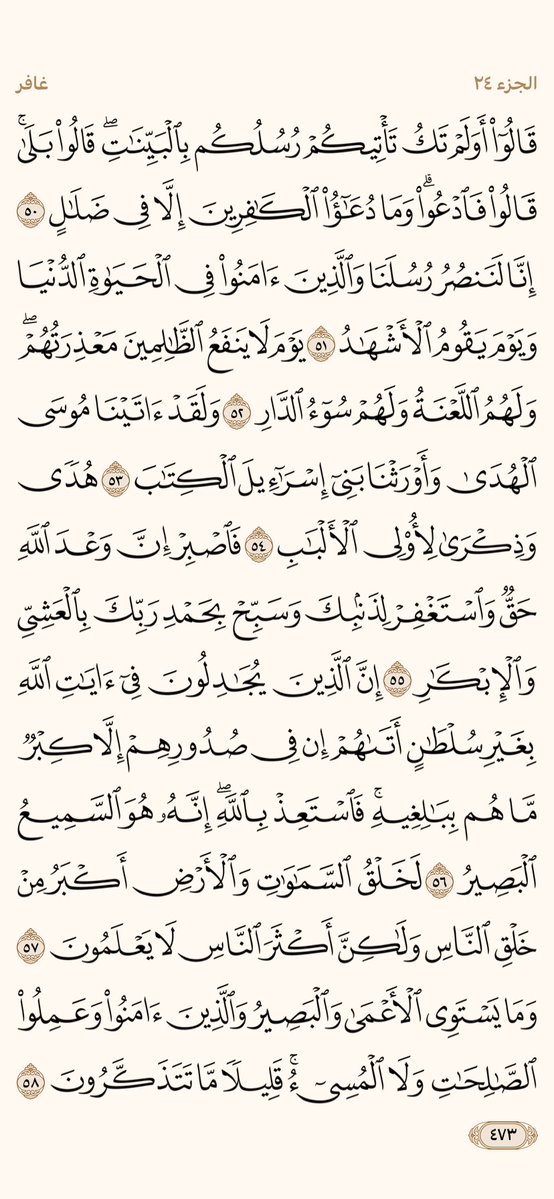 الجزء ٢٤
غافر
قَالُوٓا۟ أَوَلَمۡ تَكُ تَأۡتِيكُمۡ رُسُلُكُم بِٱلۡبَيِّنَٰتِۖ قَالُوا۟ بَلَىٰۚ
قَالُوا۟ فَٱدۡعُوا۟ۗ وَمَا دُعَٰٓؤُا۟ ٱلۡكَٰفِرِينَ إِلَّا فِى ضَلَٰلٍ ٥٠
إِنَّا لَنَنصُرُ رُسُلَنَا وَٱلَّذِينَ ءَامَنُوا۟ فِى ٱلۡحَيَوٰةِ ٱلدُّنۡيَا
وَيَوۡمَ يَقُومُ ٱلۡأَشۡهَٰدُ ٥١ يَوۡمَ لَا يَنفَعُ ٱلظَّٰلِمِينَ مَعۡذِرَتُهُمۡۖ
وَلَهُمُ ٱللَّعۡنَةُ وَلَهُمۡ سُوٓءُ ٱلدَّارِ ٥٢ وَلَقَدۡ ءَاتَيۡنَا مُوسَى
ٱلۡهُدَىٰ وَأَوۡرَثۡنَا بَنِىٓ إِسۡرَٰٓءِيلَ ٱلۡكِتَٰبَ ٥٣ هُدًى
وَذِكۡرَىٰ لِأُو۟لِى ٱلۡأَلۡبَٰبِ ٥٤ فَٱصۡبِرۡ إِنَّ وَعۡدَ ٱللَّهِ
حَقٌّ وَٱسۡتَغۡفِرۡ لِذَنۢبِكَ وَسَبِّحۡ بِحَمۡدِ رَبِّكَ بِٱلۡعَشِىِّ
وَٱلۡإِبۡكَٰرِ ٥٥ إِنَّ ٱلَّذِينَ يُجَٰدِلُونَ فِىٓ ءَايَٰتِ ٱللَّهِ
بِغَيۡرِ سُلۡطَٰنٍ أَتَىٰهُمۡ إِن فِى صُدُورِهِمۡ إِلَّا كِبۡرٌ
مَّا هُم بِبَٰلِغِيهِۚ فَٱسۡتَعِذۡ بِٱللَّهِۖ إِنَّهُۥ هُوَ ٱلسَّمِيعُ
ٱلۡبَصِيرُ ٥٦ لَخَلۡقُ ٱلسَّمَٰوَٰتِ وَٱلۡأَرۡضِ أَكۡبَرُ مِنۡ
خَلۡقِ ٱلنَّاسِ وَلَٰكِنَّ أَكۡثَرَ ٱلنَّاسِ لَا يَعۡلَمُونَ ٥٧
وَمَا يَسۡتَوِى ٱلۡأَعۡمَىٰ وَٱلۡبَصِيرُ وَٱلَّذِينَ ءَامَنُوا۟ وَعَمِلُوا۟
ٱلصَّٰلِحَٰتِ وَلَا ٱلۡمُسِىٓءُۚ قَلِيلًا مَّا تَتَذَكَّرُونَ ٥٨
٤٧٣